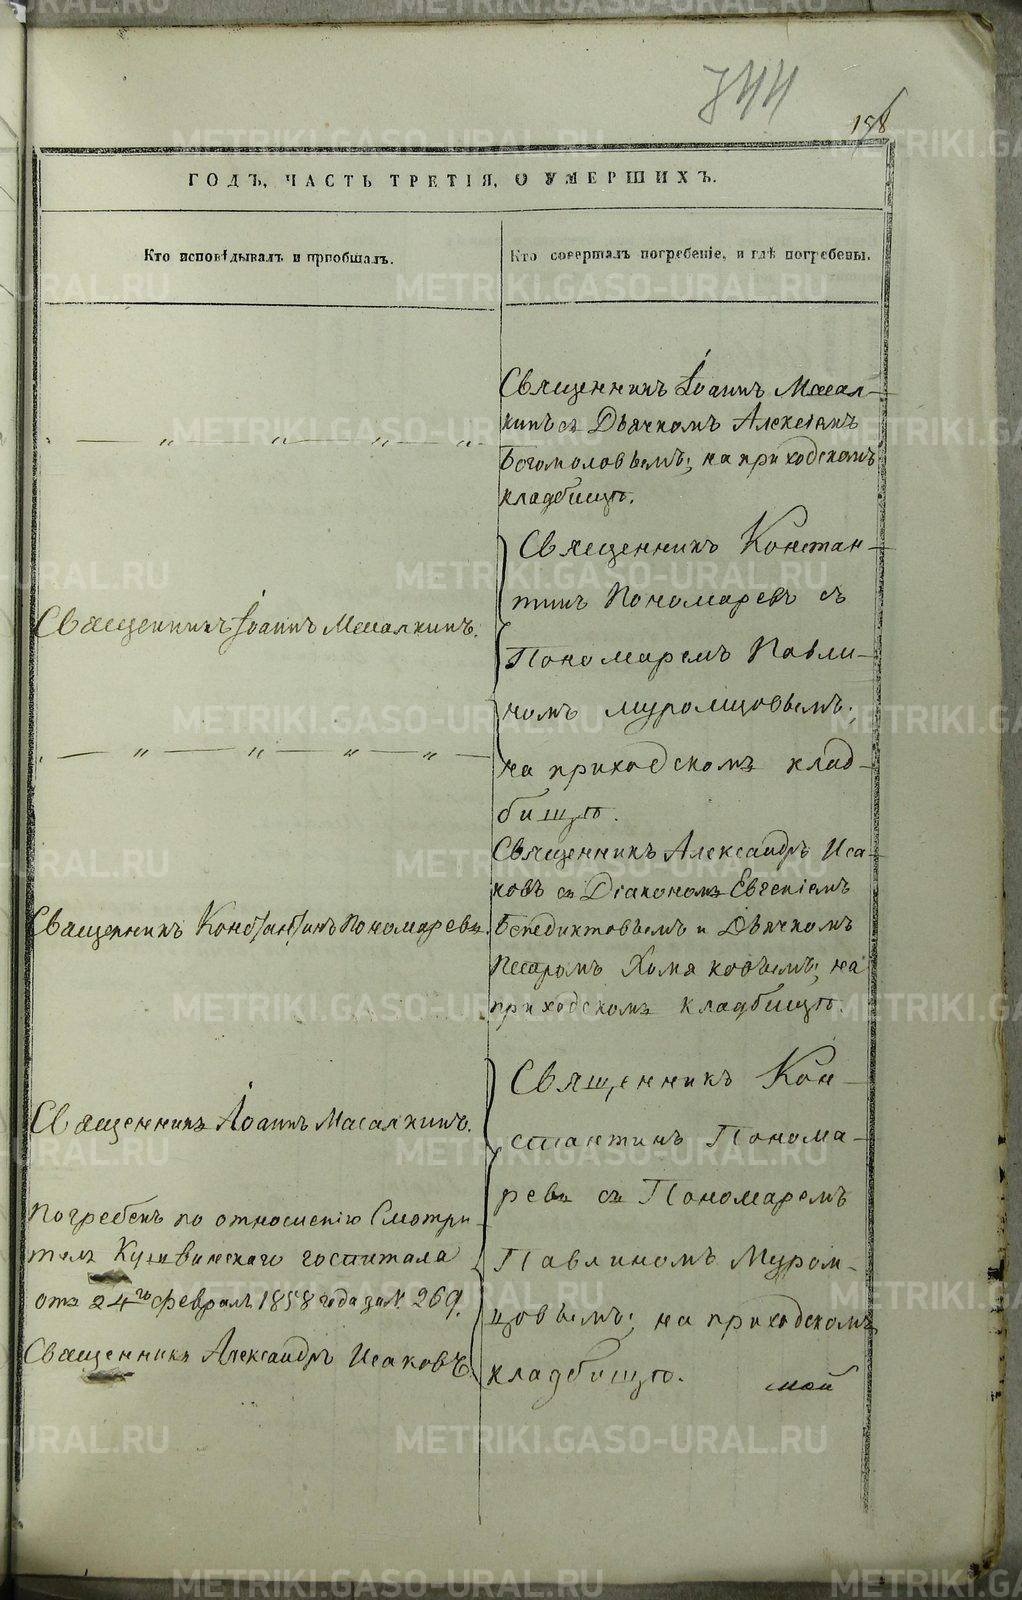 744
158
ГОДЪ, ЧАСТЬ ТРЕТІЯ, О УМЕРШИХЪ.
Кто исповѣдывалъ и пріобщалъ.
Кто совершалъ погребеніе, и гдѣ погребены.
Священникъ Іоаннъ Масал-
кинъ съ Дьячкомъ Алексіемъ
Богомоловымъ; на приходскомъ
кладбищѣ.
Священникъ Іоаннъ Масалкинъ.
Священникъ Констан-
тинъ Пономаревъ съ
Пономаремъ Павли-
номъ Муромцовымъ;
на приходскомъ клад-
бищѣ.
Священникъ Константинъ Пономаревъ.
Священникъ Александръ Иса-
ковъ съ Діакономъ Евгеніемъ
Бенедиктовымъ и Дьячкомъ
Петромъ Хомяковымъ; на
приходскомъ кладбищѣ.
Священникъ Іоаннъ Масалкинъ.
Погребенъ по отношенію Смотри-
теля Кушвинскаго госпиталя
отъ 24го февраля 1858 года за № 269.
Священникъ Александръ Исаковъ.
Священникъ Кон-
стантинъ Понома-
ревъ съ Пономаремъ
Павлиномъ Муром-
цовымъ; на приходскомъ
кладбищѣ.
мой
METRIKI.GASO-URAL.RU